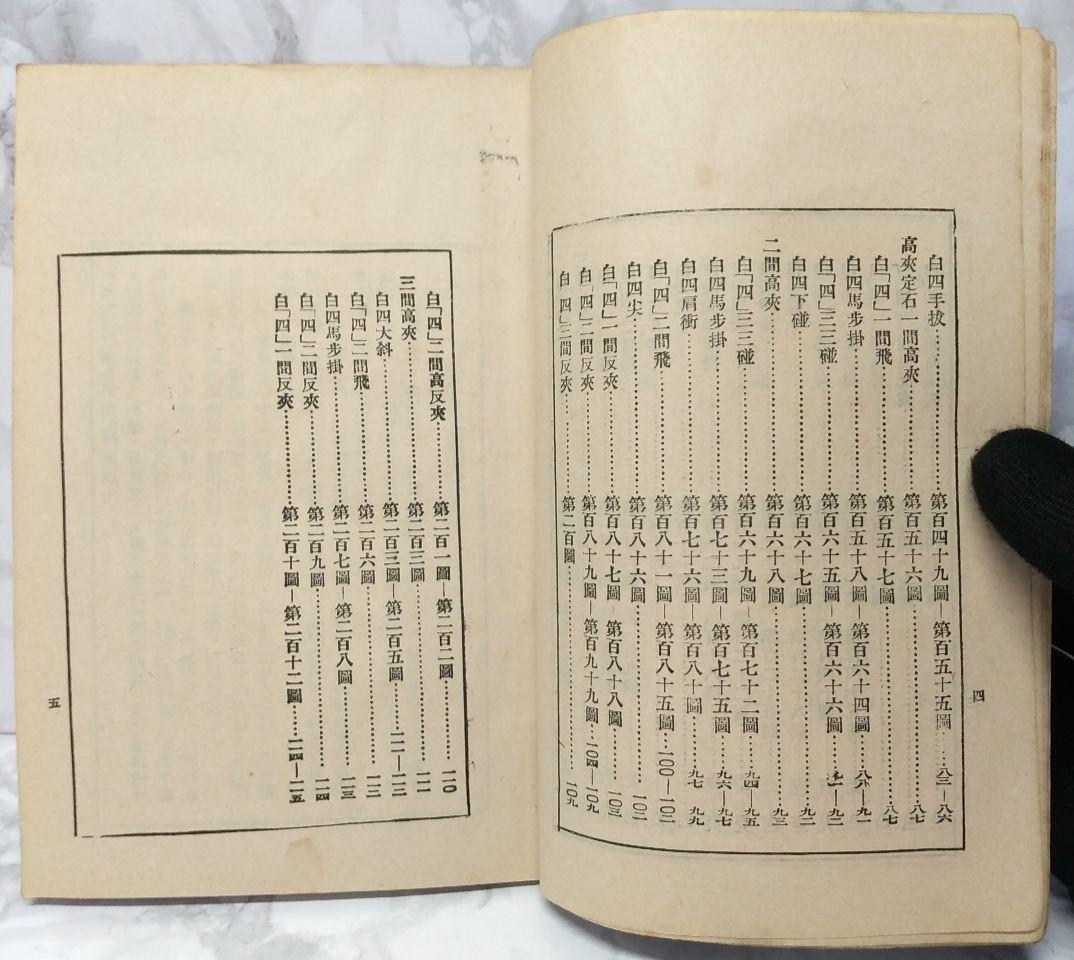 白四手拔……第百四十九圖—第百五十五圖……八三—八六
高夾定石一間高夾……第百五十六圖……八七
白「四」一間飛……第百五十七圖……八七
白四馬步掛……第百五十八圖—第百六十四圖……八八—九一
白「四」三三碰……第百六十五圖—第百六十六圖……九一—九二
白四下碰……第百六十七圖……九二
二間高夾……第百六十八圖……九三
白「四」三三碰……第百六十九圖—第百七十二圖……九四—九五
白四馬步掛……第百七十三圖—第百七十五圖……九六—九七
白四肩衝……第百七十六圖 第百八十圖……九七 九九
白「四」二間飛……第百八十一圖—第百八十五圖……一〇〇—一〇二
白四尖……第百八十六圖……一〇二
白「四」一間反夾……第百八十七圖—第百八十八圖……一〇三
白「四」二間反夾……第百八十九圖—第百九十九圖……一〇四—一〇九
白 四」三間反夾……第二百圖……一〇九
四
白「四」二間高反夾……第二百一圖—第二百二圖……一一〇
三間高夾……第二百三圖……一一一
白四大斜……第二百三圖—第二百五圖……一一一—一一二
白「四」二間飛……第二百六圖……一一二
白四馬步掛……第二百七圖—第二百八圖……一一三
白「四」二間反夾……第二百九圖……一一四
白「四」一間反夾……第二百十圖—第二百十二圖……一一四—一一五
五